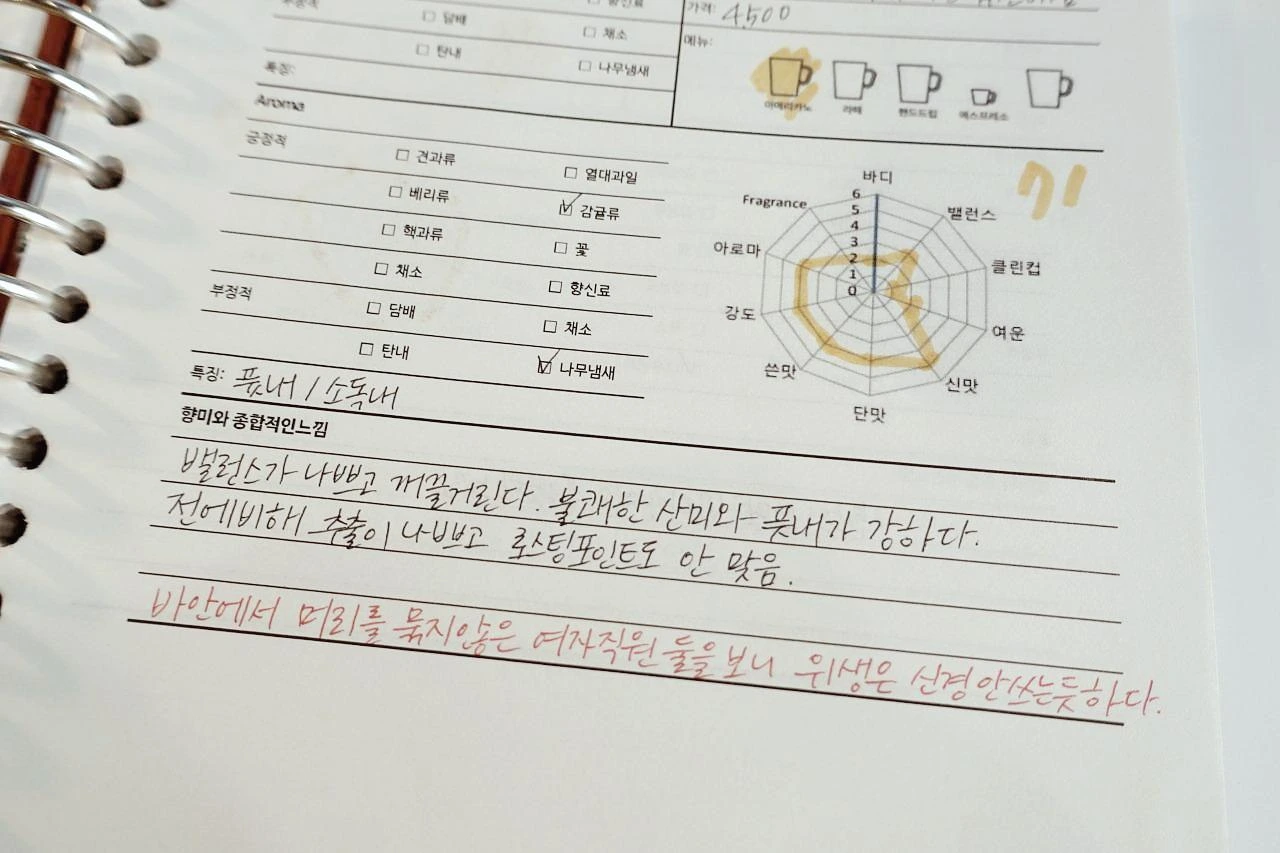 향신료
가격: 4,500
부정적
□ 담배
□ 채소
□ 탄내
□ 나무냄새
특징:
메뉴:
아메리카노 라떼 핸드드립 에스프레소
Aroma
긍정적
□ 견과류
□ 열대과일
□ 베리류
☑ 감귤류
□ 핵과류
□ 꽃
□ 채소
□ 향신료
부정적
□ 담배
□ 채소
□ 탄내
☑ 나무냄새
특징: 풋내 / 소독내
71
바디
밸런스
클린컵
여운
신맛
단맛
쓴맛
강도
아로마
Fragrance
6
5
4
3
2
1
0
향미와 종합적인느낌
밸런스가 나쁘고 꺼끌거린다. 불쾌한 산미와 풋내가 강하다.
전에비해 추출이 나쁘고 로스팅포인트도 안 맞음.
바안에서 머리를 묶지않은 여자직원 둘을 보니 위생은 신경안쓰는듯하다.